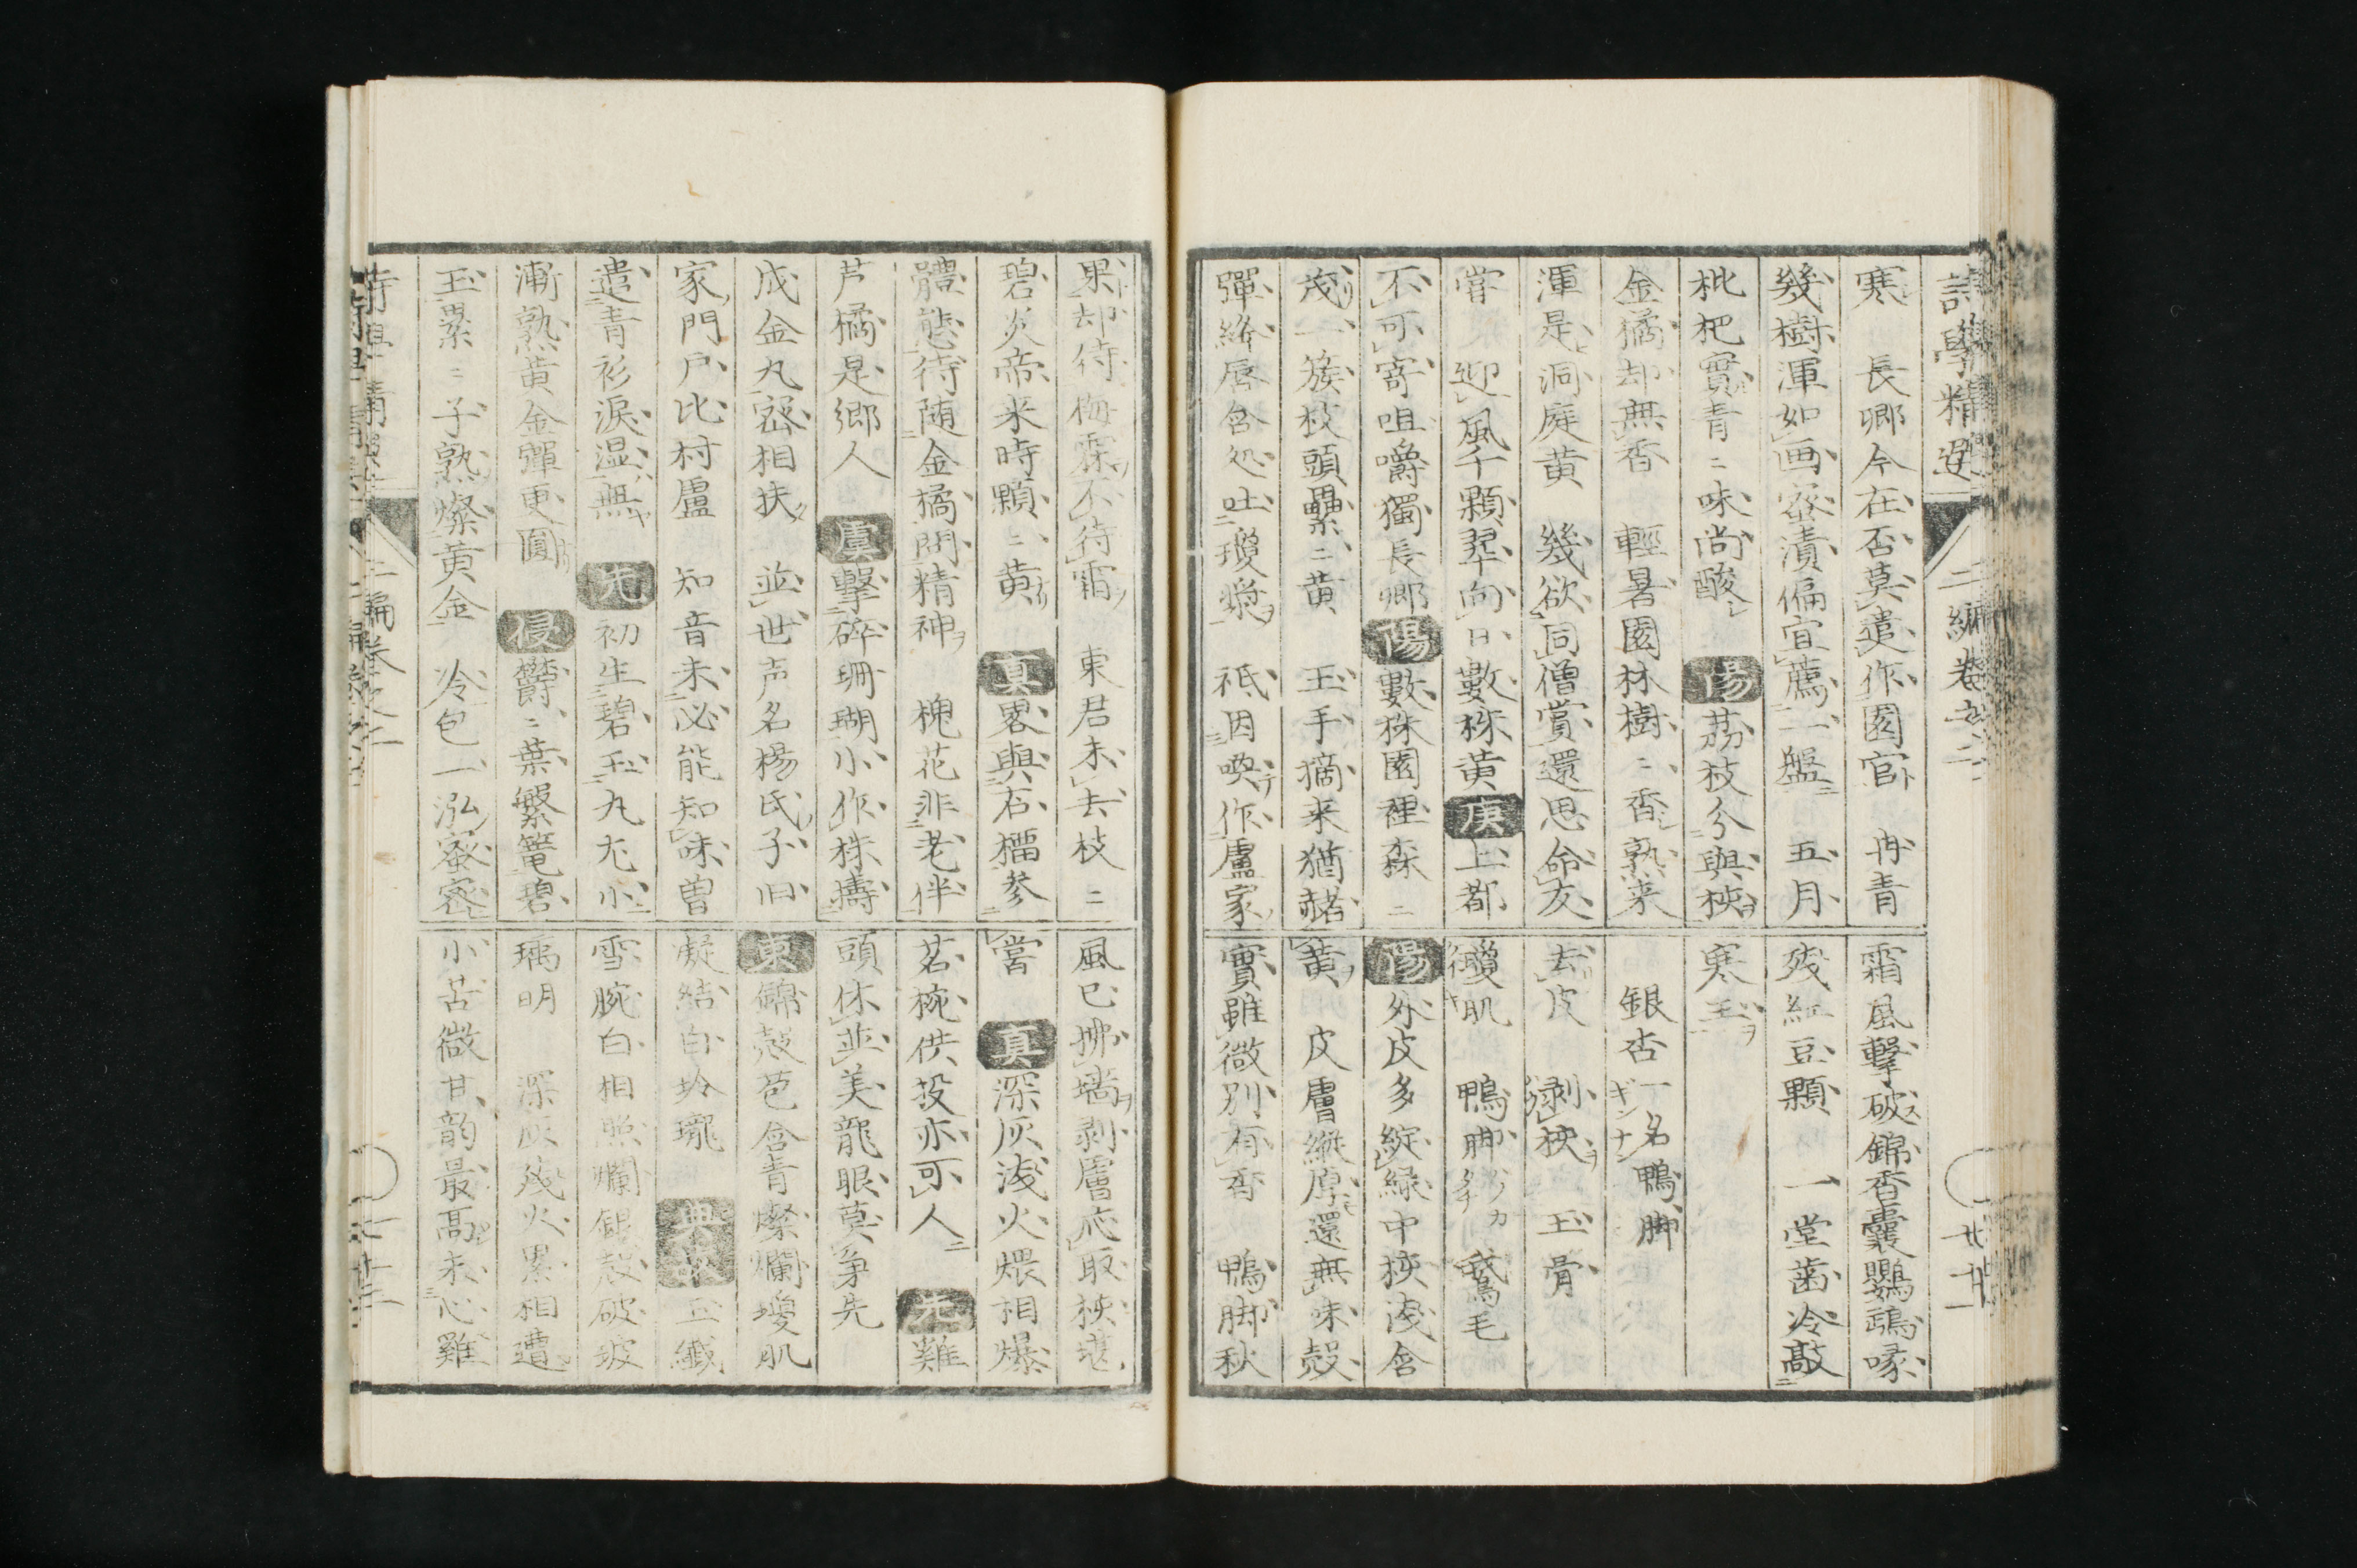 詩學精選 二編卷之二 廿二
寒 長卿今在否莫遣作園官 冉青
幾樹渾如画蜜漬偏宜薦一盤 五月
枇杷實青〻味尚酸 陽 荔枝分與核
金橘却無香 輕暑園林樹〻香熟来
渾是洞庭黄 幾欲同僧賞還思命友
甞 迎風千顆翠向日數株黄 庚 上都
不可寄咀嚼獨長卿 陽 數株園裡森〻
茂一簇枝頭纍〻黄 玉手摘来猶赭
彈絳唇含処吐瓊漿 祗因喚作盧家
霜風擊破錦香囊鸚鵡啄
残紅豆顆 一堂歯冷敲
寒玉
銀杏 一名鴨脚 ギンナン
去皮 剥核 玉骨
瓊肌 鴨脚 鵞毛
陽 外皮多綻緑中核淺含
黄 皮膚縱厚還無味殼
實雖微別有香 鴨脚秋
果却待梅霖不待霜 東君未去枝〻
碧炎帝来時顆〻黄 真 畧與石榴参
體態待随金橘問精神 槐花非老伴
芦橘是郷人 虞 擊碎珊瑚小作株擣
成金丸密相扶 並世声名楊氏子旧
家門戸比村盧 知音未必能知味曽
遣青衫淚湿無 先 初生碧玉丸尤小
漸熟黄金彈更圓 侵 欝〻葉繁篭碧
玉累〻子熟燦黄金 冷包一泓蜜密
風已拂墻剥膚応取核堪
嘗 真 深灰淺火煨相爆
茗椀供投亦可人 先 難
頭休並美龍眼莫争先
東 錦殻苞含青燦爛瓊肌
凝結白玲瓏 典故 玉纎
雪腕白相照爛銀殻破玻
瑀明 深灰残火累相遭
小苦微甘韵最髙未心難